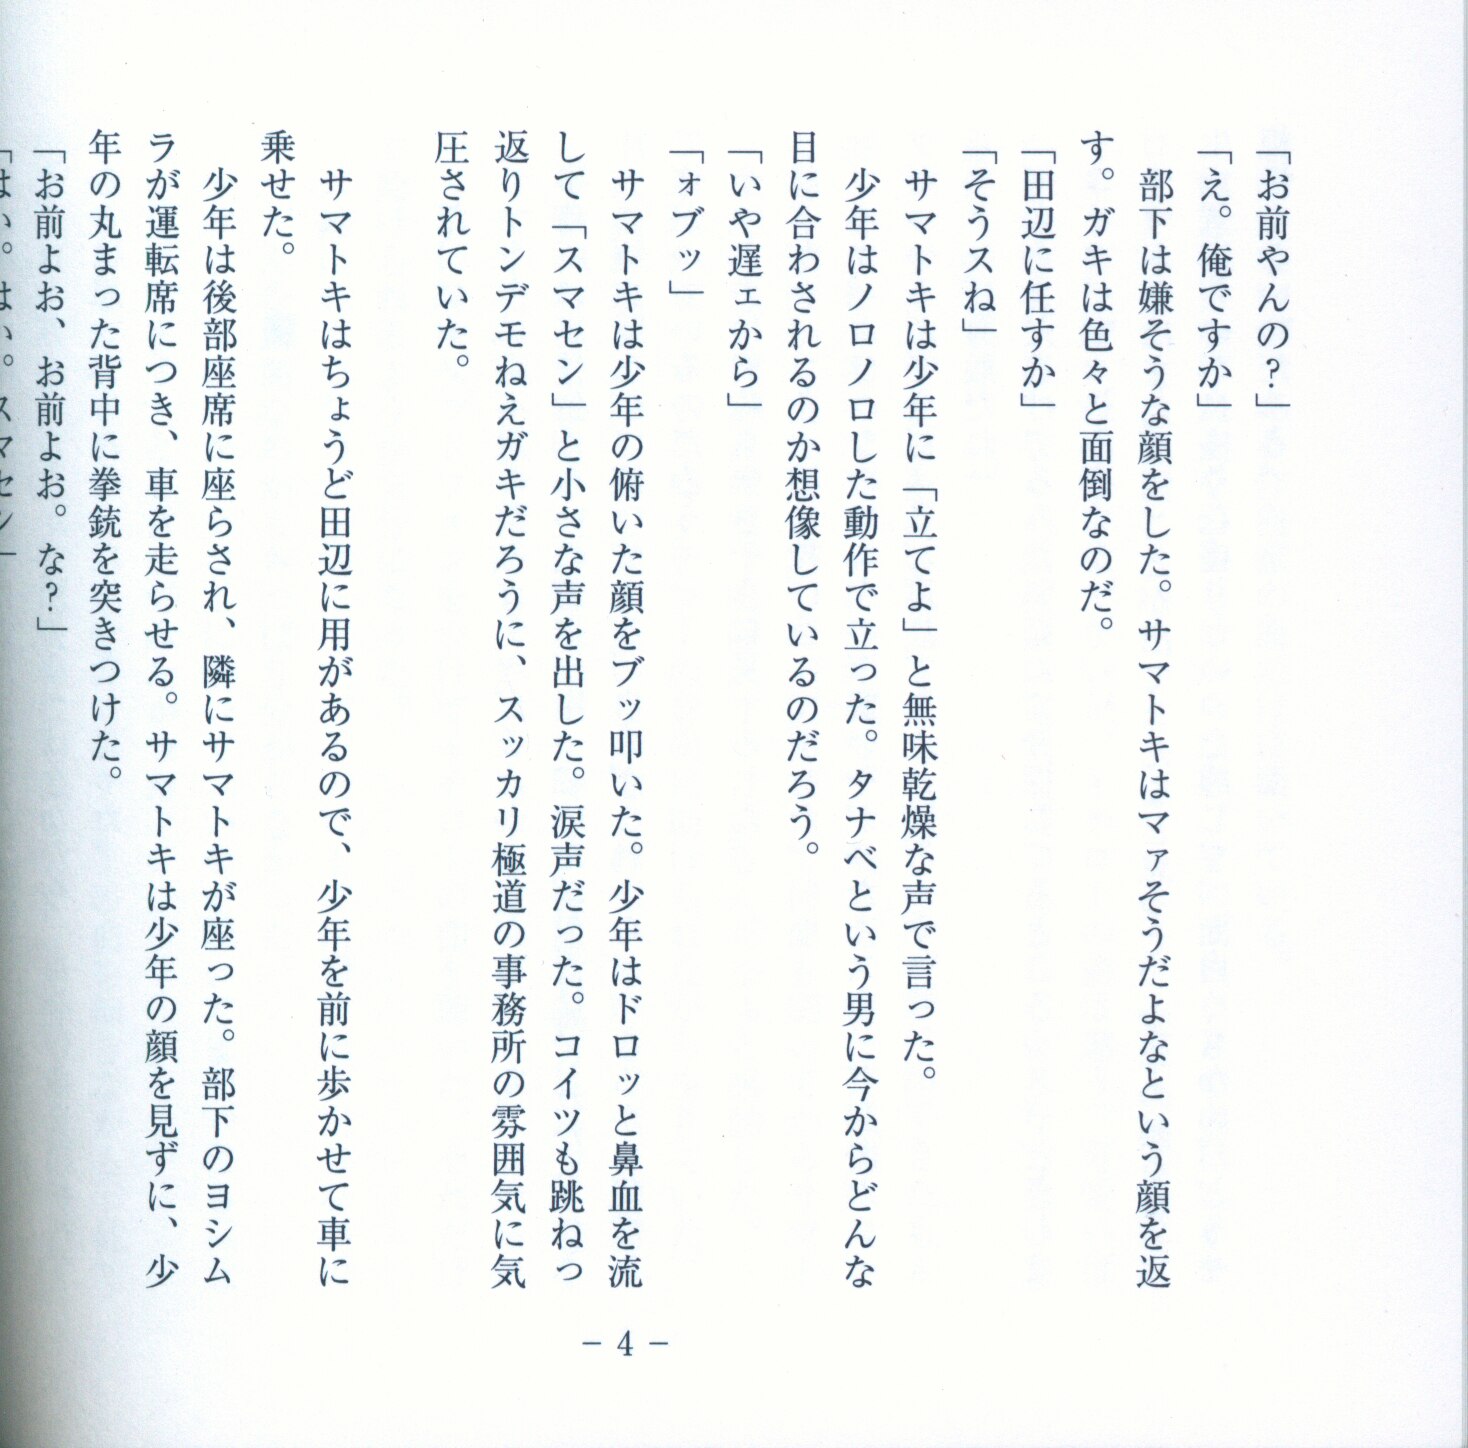 「お前やんの?」
「え。俺ですか」
部下は嫌そうな顔をした。サマトキはマァそうだよなという顔を返
す。ガキは色々と面倒なのだ。
「田辺に任すか」
「そうスね」
サマトキは少年に「立てよ」と無味乾燥な声で言った。
少年はノロノロした動作で立った。タナベという男に今からどんな
目に合わされるのか想像しているのだろう。
「いや遅ェから」
「ォブッ」
サマトキは少年の俯いた顔をブッ叩いた。少年はドロッと鼻血を流
して「スマセン」と小さな声を出した。涙声だった。コイツも跳ねっ
返りトンデモねえガキだろうに、スッカリ極道の事務所の雰囲気に気
圧されていた。
サマトキはちょうど田辺に用があるので、少年を前に歩かせて車に
乗せた。
少年は後部座席に座らされ、隣にサマトキが座った。部下のヨシム
ラが運転席につき、車を走らせる。サマトキは少年の顔を見ずに、少
年の丸まった背中に拳銃を突きつけた。
「お前よお、お前よお。な?」
「はい。はい。スマセン」
- 4 -